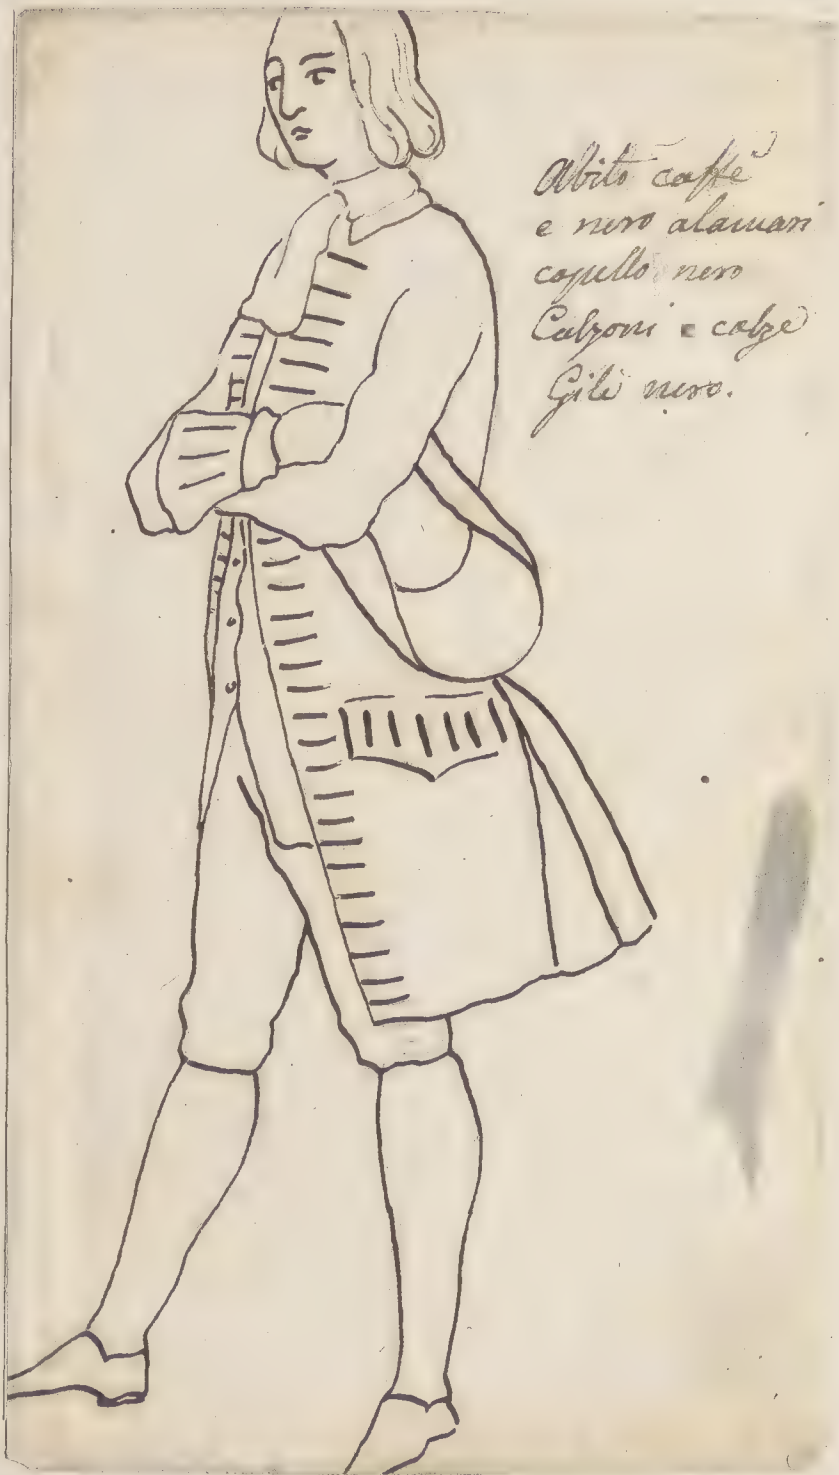 Abito caffè
e nero alamari
capello nero
Calzoni e calze
Gilè nero.